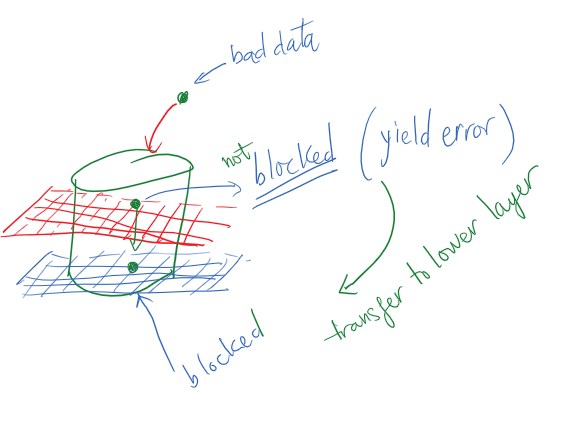 bad data
not
blocked (yield error)
transfer to lower layer
blocked